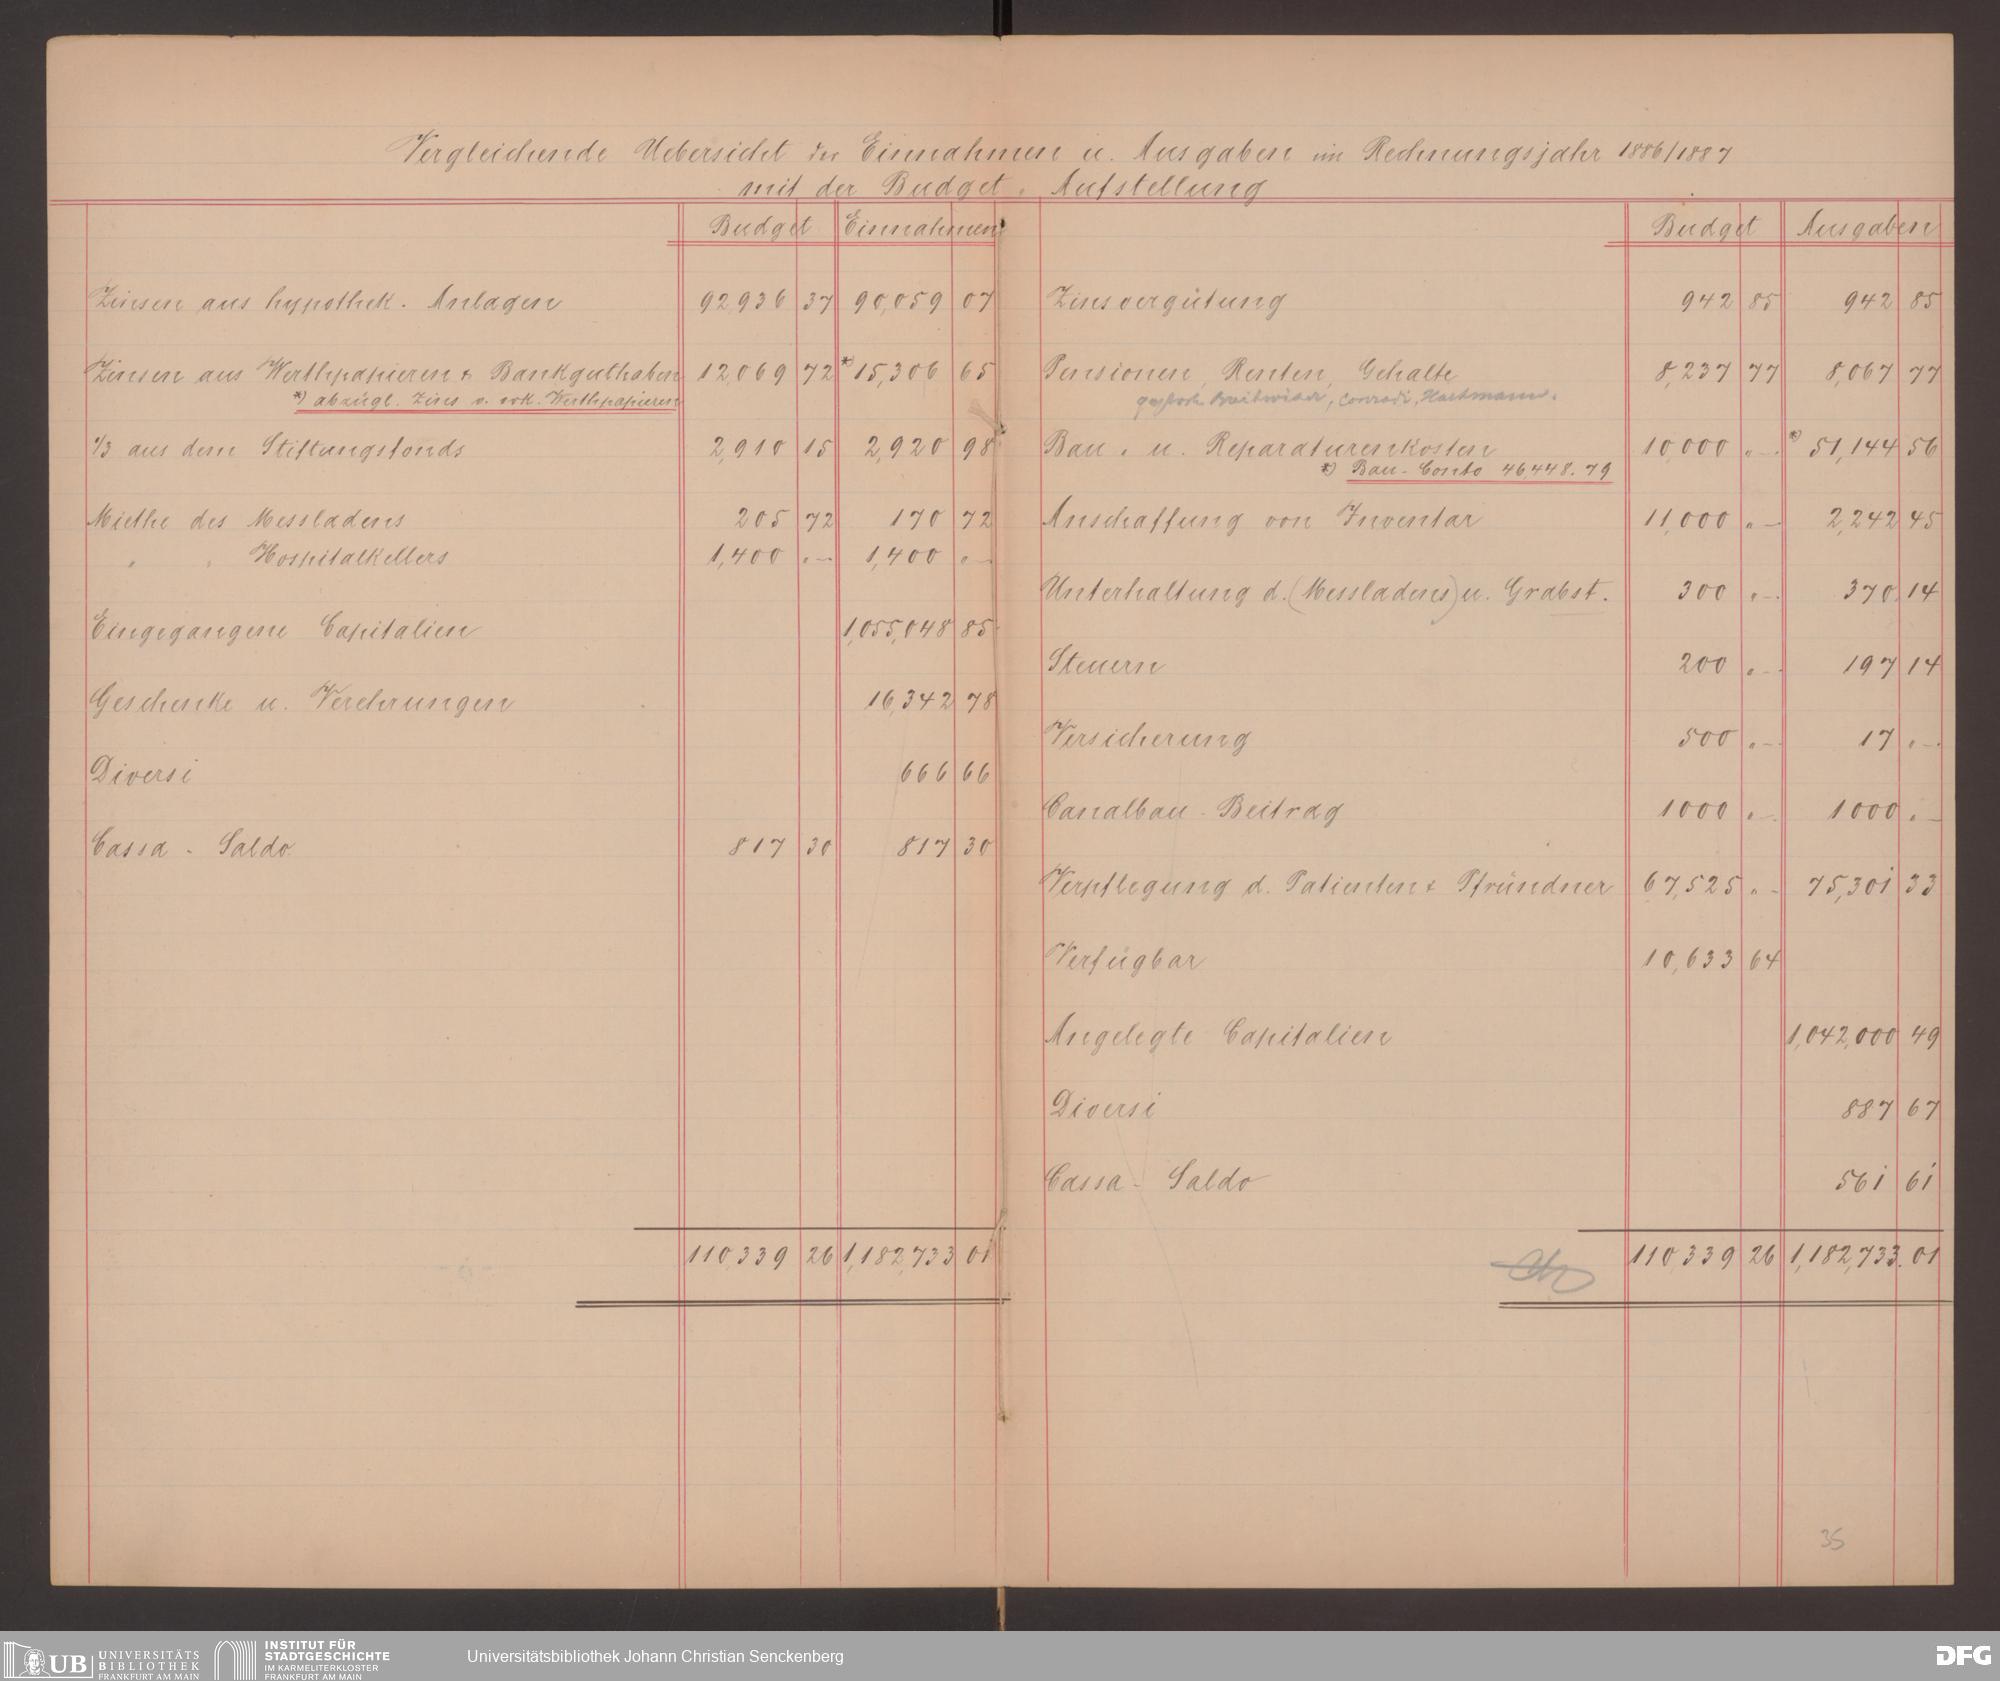 Vergleichende Uebersicht der Einnahmen u. Ausgaben im Rechnungsjahr 1886/1887
mit der Budget-Aufstellung
Budget Einnahmen
Zinsen aus hypothek. Anlagen 92,936 37 90,059 07
Zinsen aus Werthpapieren & Bankguthaben 12,069 72 *) 15,306 65
*) abzügl. Zins v. Werthpapieren
1/3 aus dem Stiftungsfonds 2,910 15 2,920 98
Miethe des Messladens 205 72 170 72
" " Hospitalkellers 1,400 "- 1,400 "-
Eingegangene Capitalien 1,055,048 85
Geschenke u. Verehrungen 16,342 78
Diversi 666 66
Cassa-Saldo 817 30 817 30
110,339 26 1,182,733 01
Budget Ausgaben
Zinsvergütung 942 85 942 85
Pensionen, Renten, Gehalte 8,237 77 8,067 77
Conradi, Hartmann.
Bau- u. Reparaturenkosten 10,000 "- *) 51,144 56
*) Bau-Conto 46,448.79
Anschaffung von Inventar 11,000 "- 2,242 45
Unterhaltung d. (Messladens) u. Grabst. 300 "- 370 14
Steuern 200 "- 197 14
Versicherung 500 "- 17 "-
Canalbau-Beitrag 1000 "- 1000 "-
Verpflegung d. Patienten & Pfründner 67,525 "- 75,301 33
Verfügbar 10,633 64
Angelegte Capitalien 1,042,000 49
Diversi 887 67
Cassa-Saldo 561 61
110,339 26 1,182,733.01
35
UB UNIVERSITÄTS
BIBLIOTHEK
FRANKFURT AM MAIN
INSTITUT FÜR
STADTGESCHICHTE
IM KARMELITERKLOSTER
FRANKFURT AM MAIN
Universitätsbibliothek Johann Christian Senckenberg
DFG